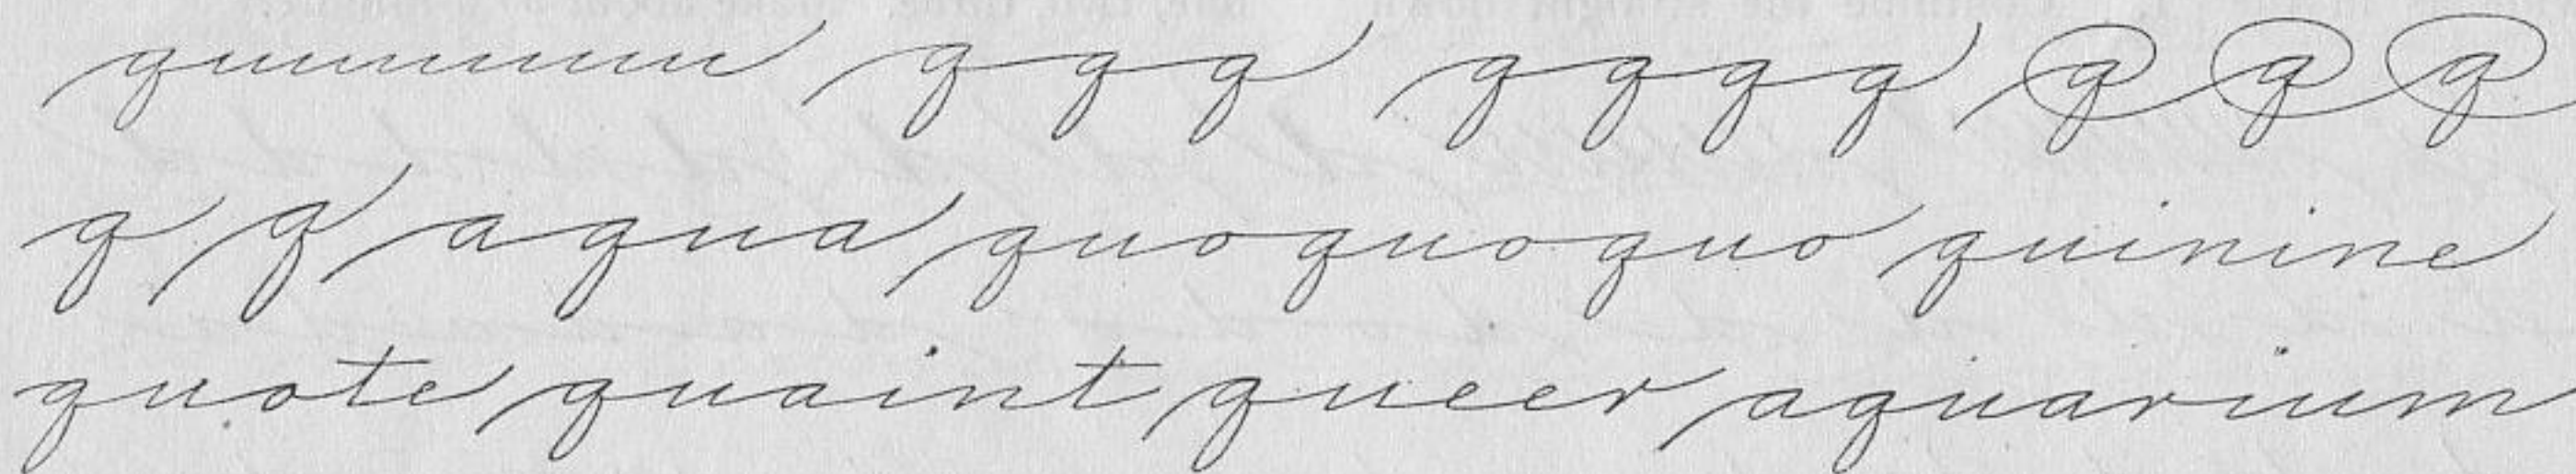 quuuuuu qqq qqqq q q q
q q aqua quoquoquo quinine
quote quaint queer aquarium